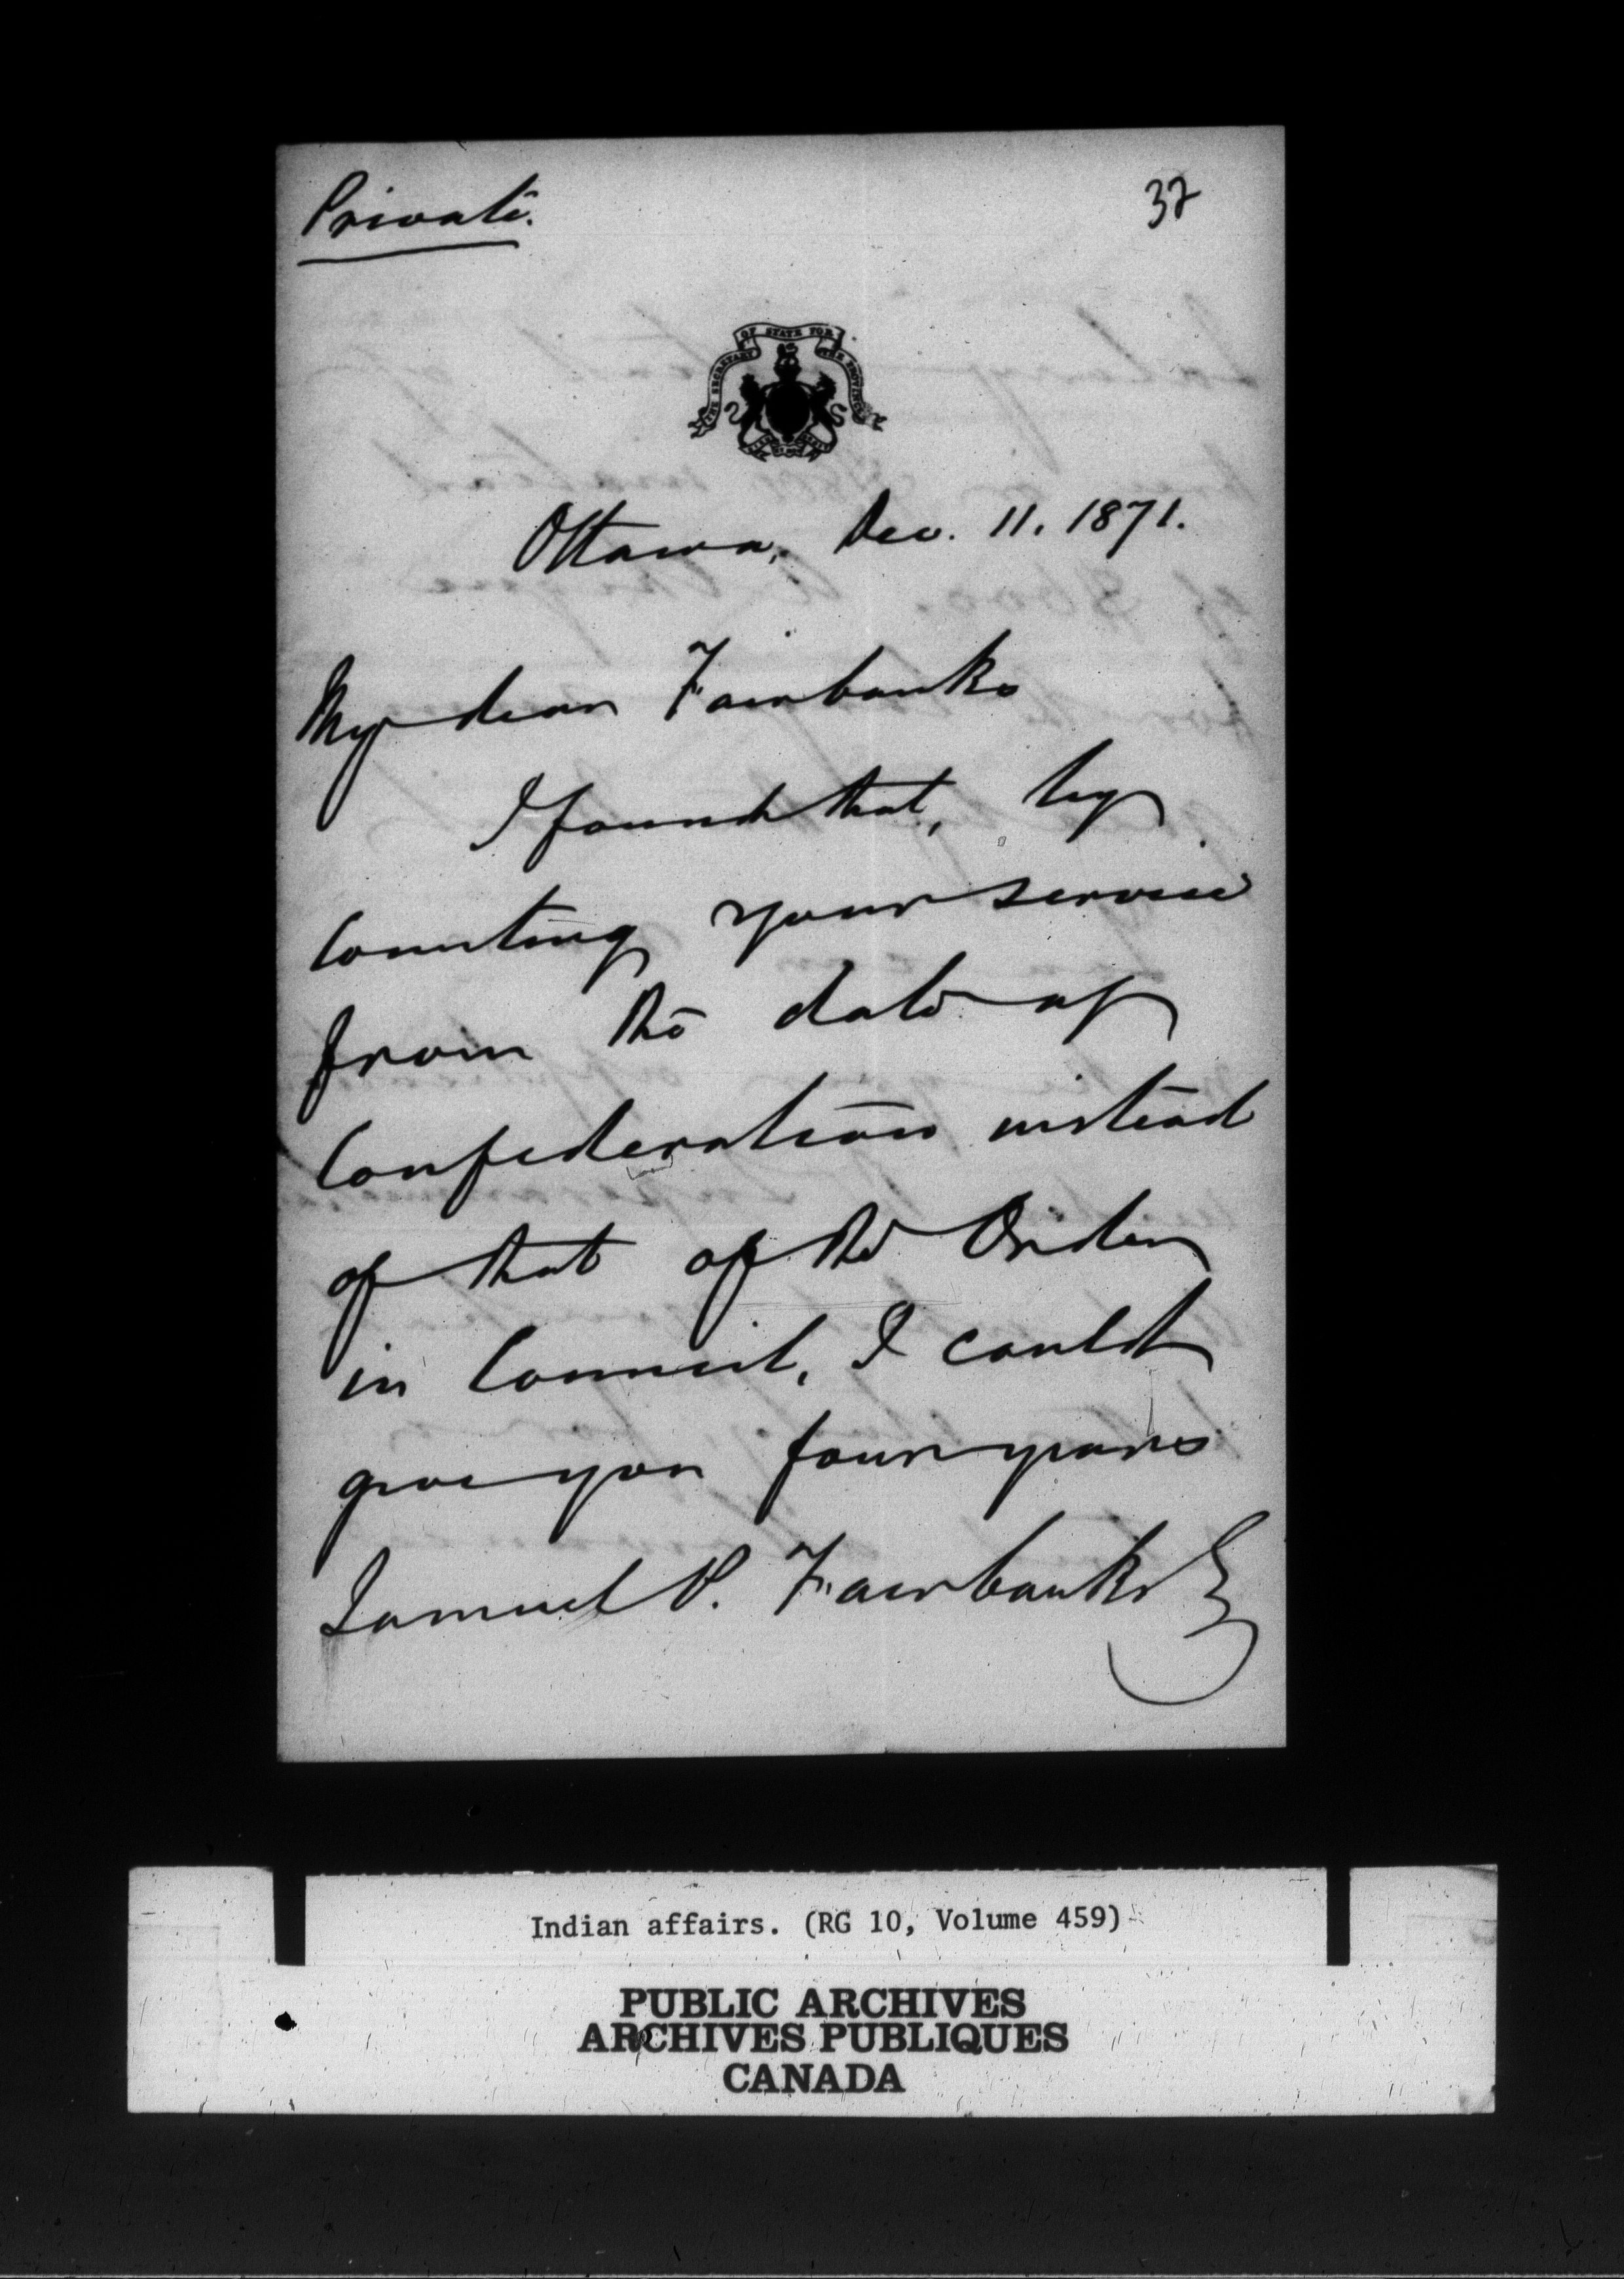 Private.
37
THE SECRETARY OF STATE FOR THE PROVINCES
Ottawa, Dec. 11. 1871.
My dear Fairbanks
I found that, by
Counting your service
from the date of
Confederation instead
of that of the Order
in Council, I could
give you four years
Samuel P. Fairbanks E
Indian affairs. (RG 10, Volume 459)
PUBLIC ARCHIVES
ARCHIVES PUBLIQUES
CANADA